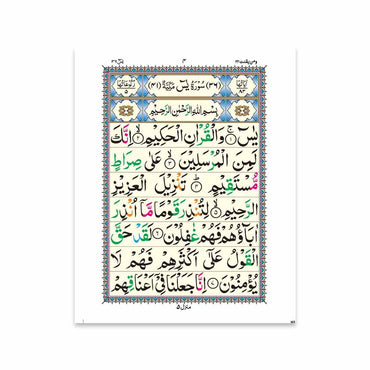 ومن يقنت ٢٢ ٣ يٰسٓ ٣٦
اٰيَاتُهَا ٨٣ (٣٦) سُوْرَةُ يٰسٓ مَكِّيَّةٌ (٤١) رُكُوْعَاتُهَا ٥
بِسْمِ اللّٰهِ الرَّحْمٰنِ الرَّحِيْمِ
يٰسٓ ۚ﴿۱﴾ وَالْقُرْاٰنِ الْحَكِيْمِ ۙ﴿۲﴾ اِنَّكَ
لَمِنَ الْمُرْسَلِيْنَ ۙ﴿۳﴾ عَلٰى صِرَاطٍ
مُّسْتَقِيْمٍ ؕ﴿۴﴾ تَنْزِيْلَ الْعَزِيْزِ
الرَّحِيْمِ ۙ﴿۵﴾ لِتُنْذِرَ قَوْمًا مَّاۤ اُنْذِرَ
اٰبَآؤُهُمْ فَهُمْ غٰفِلُوْنَ ﴿۶﴾ لَقَدْ حَقَّ
الْقَوْلُ عَلٰۤى اَكْثَرِهِمْ فَهُمْ لَا
يُؤْمِنُوْنَ ﴿۷﴾ اِنَّا جَعَلْنَا فِيْۤ اَعْنَاقِهِمْ
منزل ۵